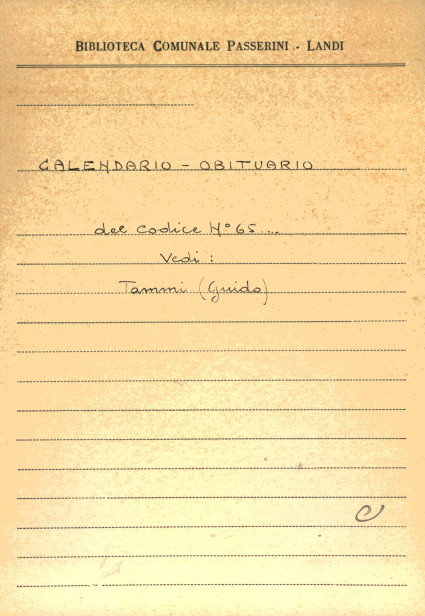 BIBLIOTECA COMUNALE PASSERINI - LANDI
CALENDARIO - OBITUARIO
del Codice N° 65 ...
Vedi :
Tammi (Guido)
C